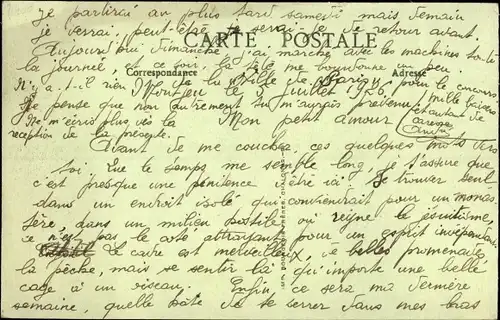 je partirai au plus tard samedi mais demain
je verrai, peut-être je serai de retour avant.
CARTE POSTALE
Aujourd'hui dimanche, j'ai marché avec les machines toute
la journée, et ce soir la tête me bourdonne un peu.
Correspondance
Adresse
N'y a-t-il rien de la Ville de Paris, pour le concours
Morjeu le 3 juillet 1926.
Je pense que non autrement tu m'aurais prévenu
1 mille baisers
et autant de
caresses
Ne m'écris plus dès la
réception de la présente.
Mon petit amour
Avant de me coucher, ces quelques mots vers
toi. Que le temps me semble long, je t'assure que
c'est presque une pénitence d'être ici. Je me trouver seul
dans un endroit isolé qui conviendrait pour un monas
tère, dans un milieu hostile où règne le jésuitisme,
ce n'est pas le côté attrayant pour un esprit indépendant
Le cadre est merveilleux, de belles promenades,
la pêche, mais se sentir là qu'importe une belle
cage à un oiseau. Enfin, ce sera ma dernière
semaine, quelle hâte de te serrer dans mes bras